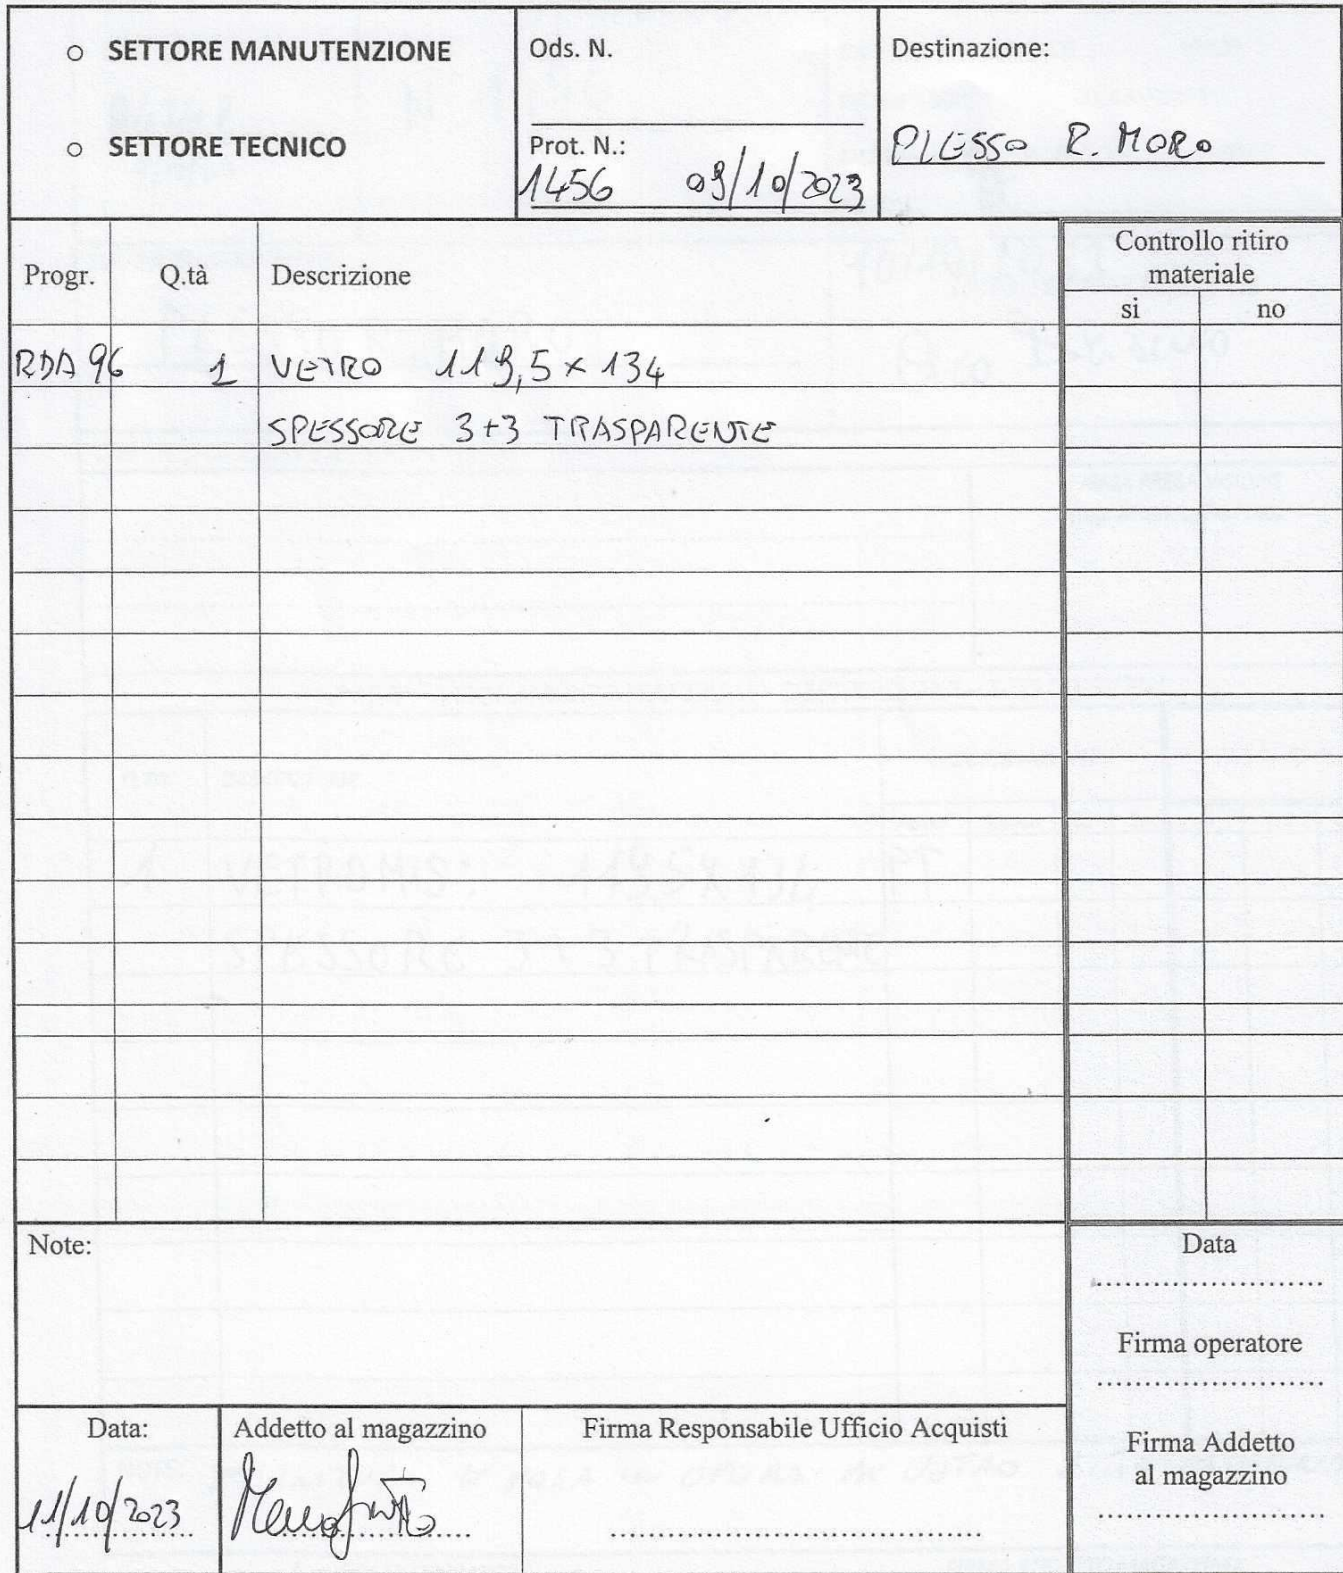 ○ SETTORE MANUTENZIONE
○ SETTORE TECNICO
Ods. N.
Prot. N.:
1456 09/10/2023
Destinazione:
PLESSO R. MORO
Progr. Q.tà Descrizione
Controllo ritiro
materiale
si no
RDA 96 1 VETRO 119,5 x 134
SPESSORE 3+3 TRASPARENTE
Note:
Data
Firma operatore
Firma Addetto
al magazzino
Data:
11/10/2023
Addetto al magazzino
Firma Responsabile Ufficio Acquisti